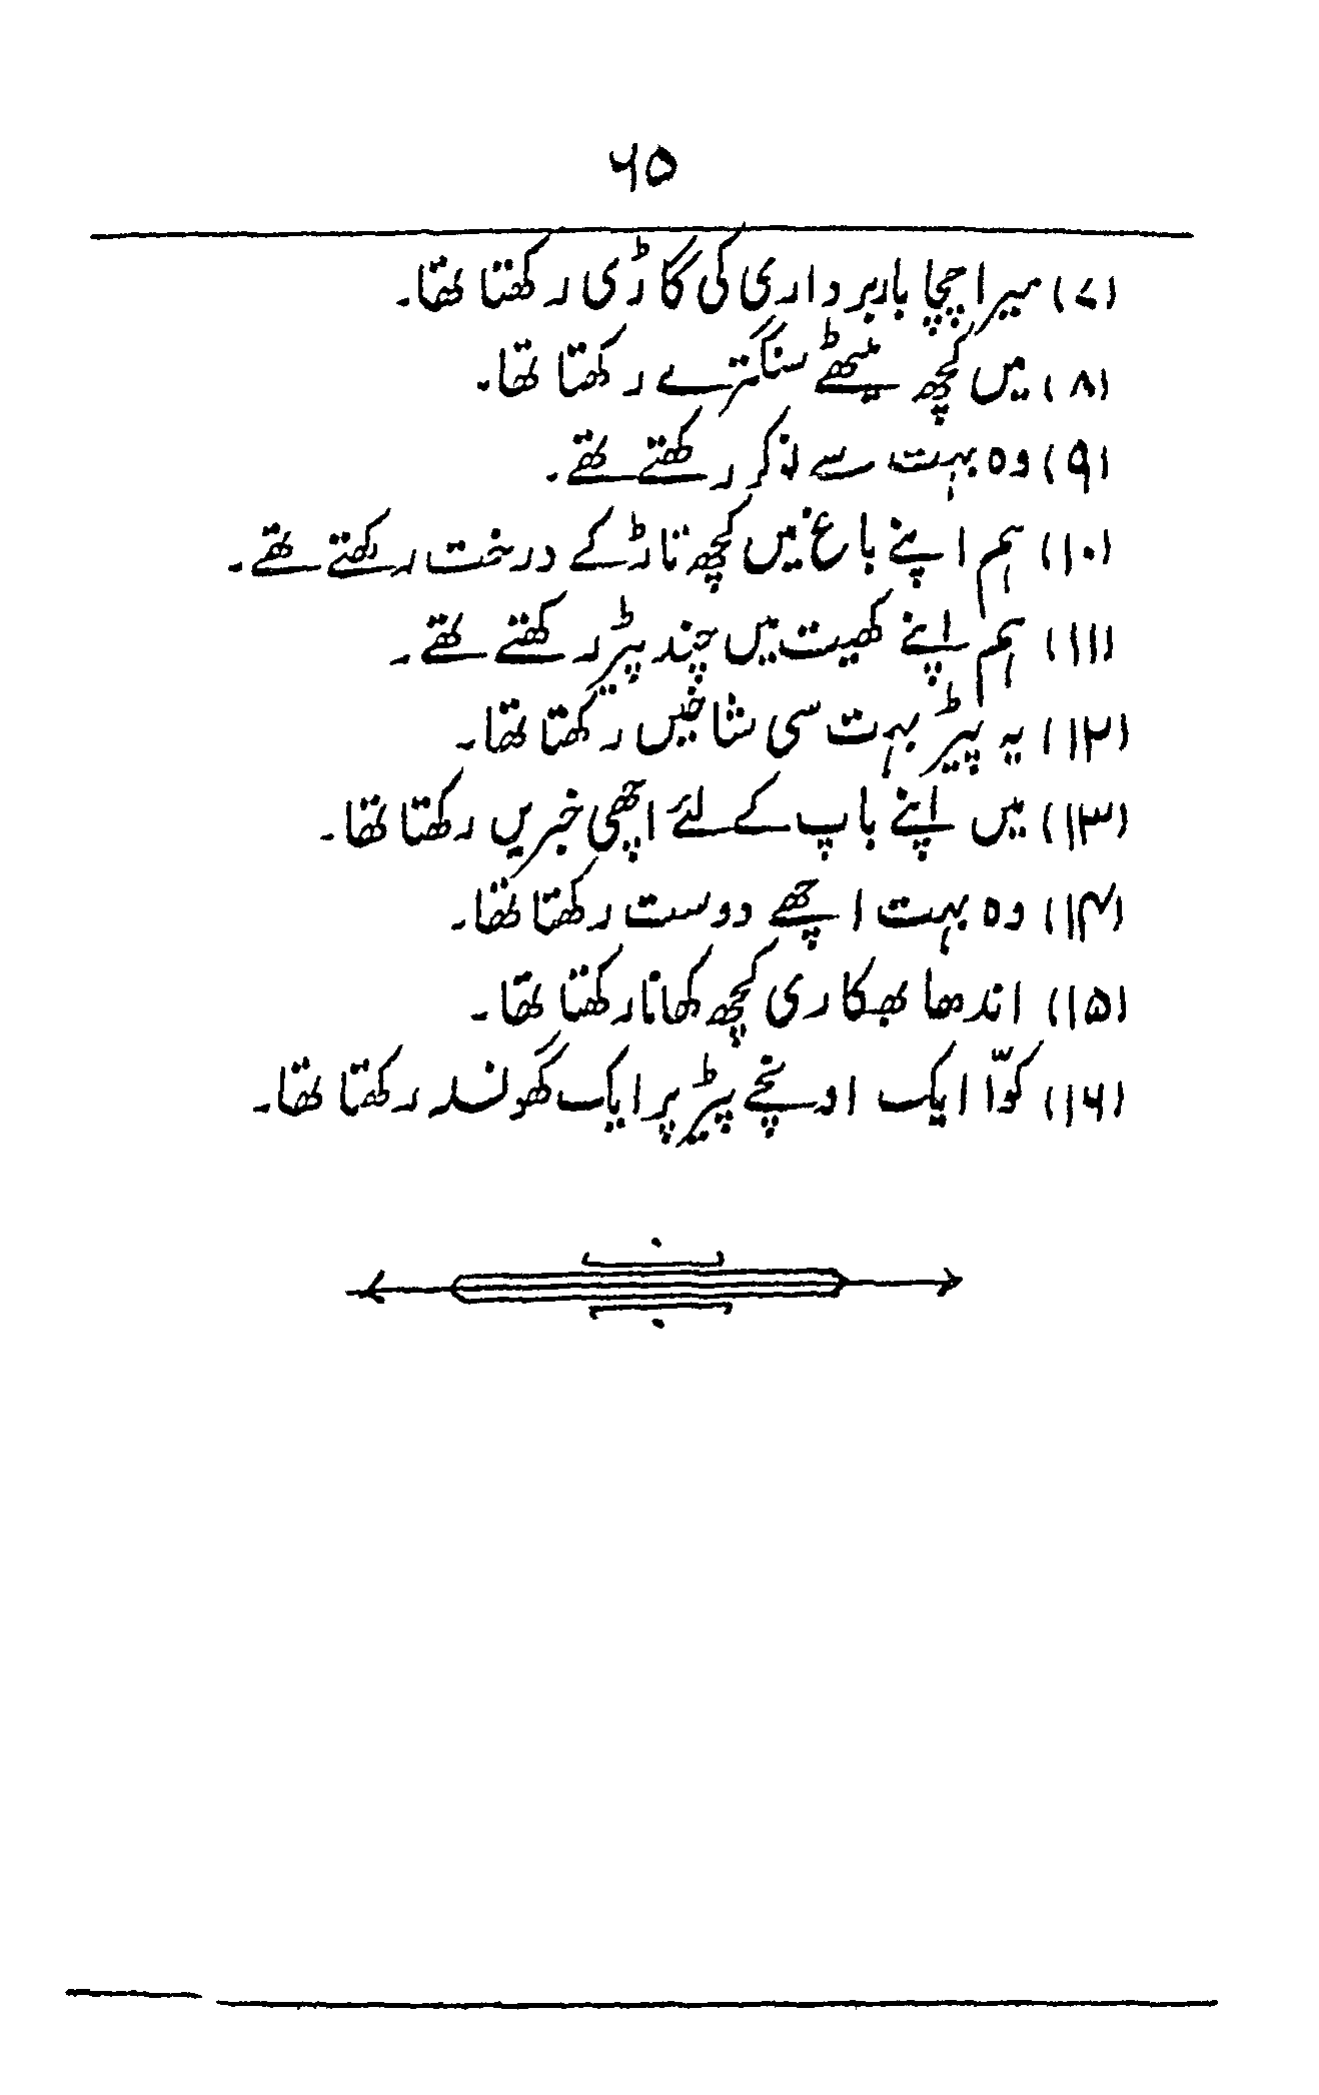 ۶۵
(۷) میرا چچا باربرداری کی گاڑی رکھتا تھا۔
(۸) میں کچھ میٹھے سنگترے رکھتا تھا۔
(۹) وہ بہت سے نوکر رکھتے تھے۔
(۱۰) ہم اپنے باغ میں کچھ تاڑ کے درخت رکھتے تھے۔
(۱۱) ہم اپنے کھیت میں چند پیڑ رکھتے تھے۔
(۱۲) یہ پیڑ بہت سی شاخیں رکھتا تھا۔
(۱۳) میں اپنے باپ کے لئے اچھی خبریں رکھتا تھا۔
(۱۴) وہ بہت اچھے دوست رکھتا تھا۔
(۱۵) اندھا بھکاری کچھ کھانا رکھتا تھا۔
(۱۶) کوّا ایک اونچے پیڑ پر ایک گھونسلہ رکھتا تھا۔